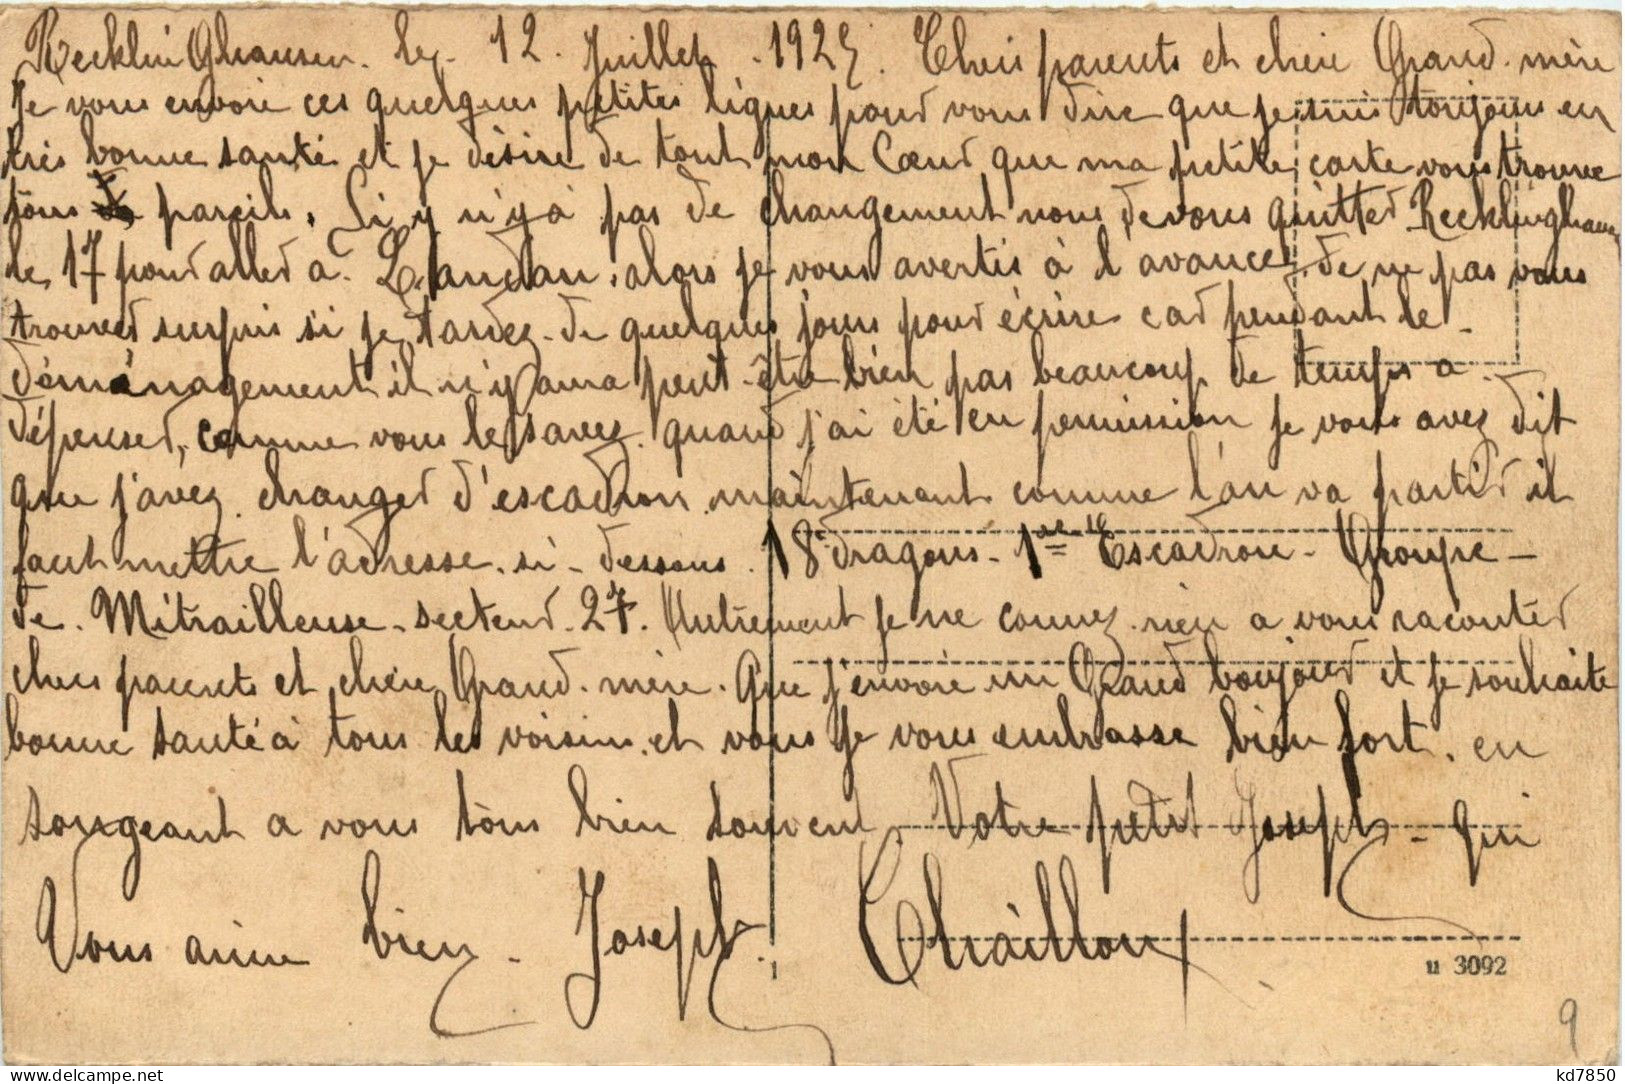 Recklinghausen. le. 12. Juillet. 1925. Chers parents et chère Grand. mère
Je vous envoie ces quelques petites lignes pour vous dire que je suis toujours en
très bonne santé et je désire de tout mon Cœur que ma petite carte vous trouve
tous de pareils. Si y n'y a pas de changement nous devons quitter Recklinghausen
le 17 pour aller a. Landau. alors je vous avertis à l'avance. de ne pas vous
trouver surpris si je tardez. de quelques jours pour écrire car pendant le
déménagement il n'y aura peut-être bien pas beaucoup de temps a
dépenser, comme vous le savez. quand j'ai été en permission je vous avez dit
que j'avez. changer d'escadron. maintenant comme l'on va partir il
faut mettre l'adresse. si-dessous. 18e dragons-1ere Escadron-Groupe-
de. Mitrailleuse. secteur. 27. Autrement je ne connez. rien a vous raconter
chers parents et chère Grand. mère. Que j'envoie un Grand boujour et je souhaite
bonne santé à tous les voisins. et vous je vous embrasse bien fort. en
songeant a vous tôus bien souvent. Votre petit Joseph-qui
Vous aime bien-Joseph. Chailloux
u 3092
9
kd7850